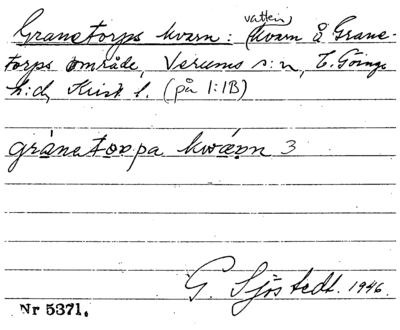 Granetorps kvarn: (vattenkvarn å Grane-
torps område, Verums s:n, V. Göinge
h:d, Krist. l. (på 1:1B)
grànatorpa kwárn 3
G. Sjöstedt. 1946.
Nr 5371.